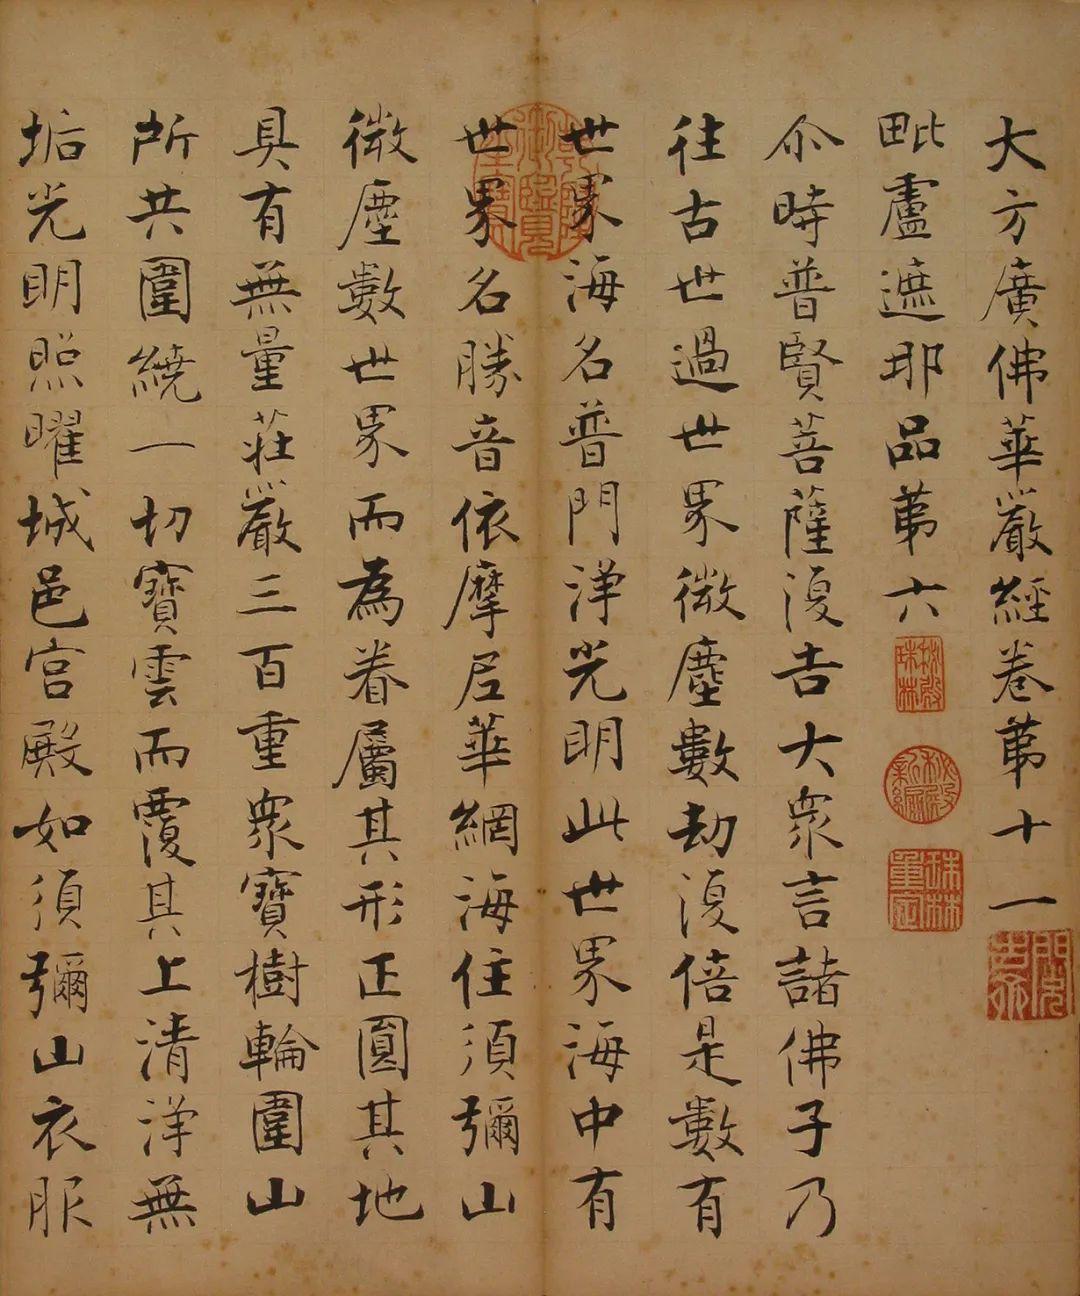 大方廣佛華嚴經卷第十一
毗盧遮耶品第六
尒時普賢菩薩復告大眾言諸佛子乃
往古世過世界微塵數劫復倍是數有
世界海名普門淨光明此世界海中有
世界名勝音依摩尼華網海住須彌山
微塵數世界而為眷屬其形正圓其地
具有無量莊嚴三百重眾寶樹輪圍山
所共圍繞一切寶雲而覆其上清淨無
垢光明照曜城邑宮殿如須彌山衣服
秘殿珠林
秘殿新編
珠林重定